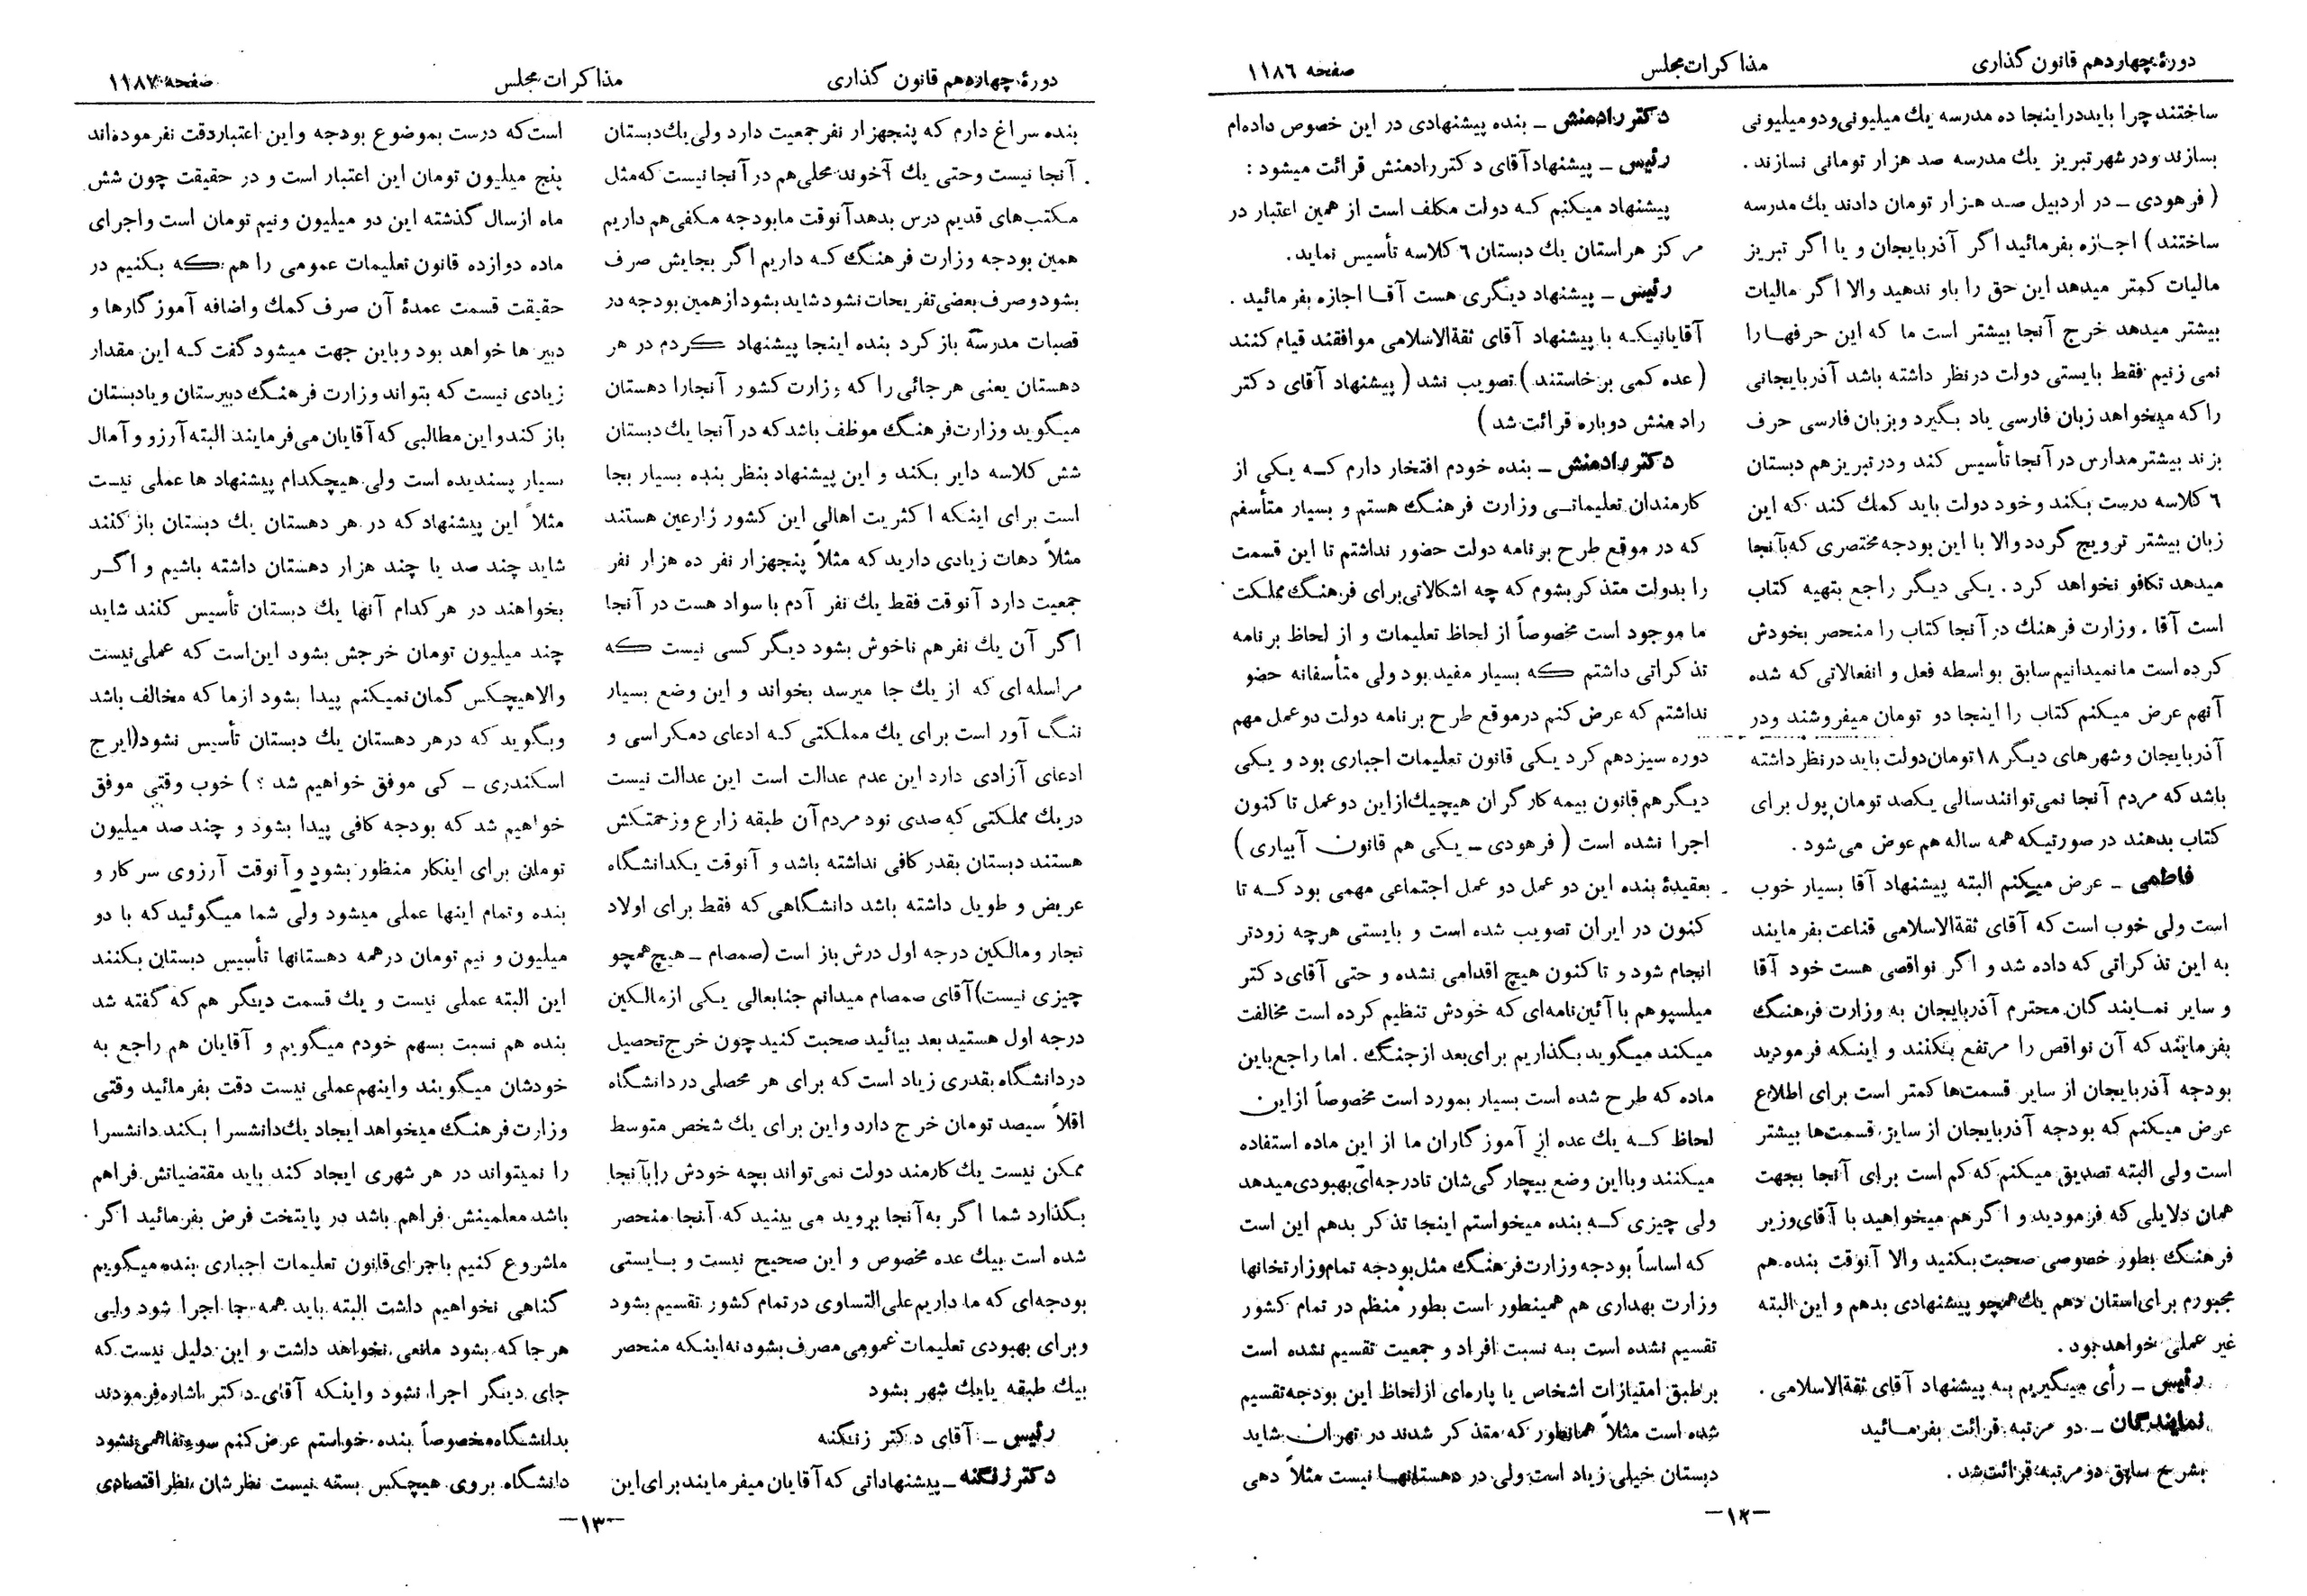 دورهٔ چهاردهم قانون گذاری
مذاکرات مجلس
صفحه ۱۱۸۶
ساختند چرا باید در اینجا ده مدرسه یك میلیونی و دو میلیونی
بسازند و در شهر تبریز یك مدرسه صد هزار تومانی نسازند .
( فرهودی ـ در اردبیل صد هزار تومان دادند یك مدرسه
ساختند ) اجازه بفرمائید اگر آذربایجان و یا اگر تبریز
مالیات کمتر میدهد این حق را باو ندهید والا اگر مالیات
بیشتر میدهد خرج آنجا بیشتر است ما که این حرفها را
نمی زنیم فقط بایستی دولت در نظر داشته باشد آذربایجانی
را که میخواهد زبان فارسی یاد بگیرد و بزبان فارسی حرف
بزند بیشتر مدارس در آنجا تأسیس کند و در تبریز هم دبستان
۶ کلاسه درست بکند و خود دولت باید کمك کند که این
زبان بیشتر ترویج گردد والا با این بودجه مختصری که بآنجا
میدهد تکافو نخواهد کرد . یکی دیگر راجع بتهیه کتاب
است آقا . وزارت فرهنك در آنجا کتاب را منحصر بخودش
کرده است ما نمیدانیم سابق بواسطه فعل و انفعالاتی که شده
آنهم عرض میکنم کتاب را اینجا دو تومان میفروشند و در
آذربایجان و شهرهای دیگر ۱۸ تومان دولت باید در نظر داشته
باشد که مردم آنجا نمی توانند سالی یکصد تومان پول برای
کتاب بدهند در صورتیکه همه ساله هم عوض می شود .
فاطمی ـ عرض میکنم البته پیشنهاد آقا بسیار خوب
است ولی خوب است که آقای ثقةالاسلامی قناعت بفرمایند
به این تذکراتی که داده شد و اگر نواقصی هست خود آقا
و سایر نمایندگان محترم آذربایجان به وزارت فرهنگ
بفرمایند که آن نواقص را مرتفع بکنند و اینکه فرمودید
بودجه آذربایجان از سایر قسمت‌ها کمتر است برای اطلاع
عرض میکنم که بودجه آذربایجان از سایر قسمت‌ها بیشتر
است ولی البته تصدیق میکنم که کم است برای آنجا بجهت
همان دلایلی که فرمودید و اگر هم میخواهید با آقای وزیر
فرهنگ بطور خصوصی صحبت بکنید والا آنوقت بنده هم
مجبورم برای استان دهم یك همچو پیشنهادی بدهم و این البته
غیر عملی خواهد بود .
رئیس ـ رأی میگیریم به پیشنهاد آقای ثقةالاسلامی .
نمایندگان ـ دو مرتبه قرائت بفرمائید
بشرح سابق دو مرتبه قرائت شد .
دکتر رادمنش ـ بنده پیشنهادی در این خصوص داده‌ام
رئیس ـ پیشنهاد آقای دکتر رادمنش قرائت میشود :
پیشنهاد میکنم که دولت مکلف است از همین اعتبار در
مرکز هر استان یك دبستان ۶ کلاسه تأسیس نماید .
رئیس ـ پیشنهاد دیگری هست آقا اجازه بفرمائید .
آقایانیکه با پیشنهاد آقای ثقةالاسلامی موافقند قیام کنند
( عده کمی برخاستند ) تصویب نشد ( پیشنهاد آقای دکتر
رادمنش دوباره قرائت شد )
دکتر رادمنش ـ بنده خودم افتخار دارم که یکی از
کارمندان تعلیماتی وزارت فرهنگ هستم و بسیار متأسفم
که در موقع طرح برنامه دولت حضور نداشتم تا این قسمت
را بدولت متذکر بشوم که چه اشکالاتی برای فرهنگ مملکت
ما موجود است مخصوصاً از لحاظ تعلیمات و از لحاظ برنامه
تذکراتی داشتم که بسیار مفید بود ولی متأسفانه حضو
نداشتم که عرض کنم در موقع طرح برنامه دولت دو عمل مهم
دوره سیزدهم کرد یکی قانون تعلیمات اجباری بود و یکی
دیگر هم قانون بیمه کارگران هیچیك از این دو عمل تا کنون
اجرا نشده است ( فرهودی ـ یکی هم قانون آبیاری )
بعقیدهٔ بنده این دو عمل دو عمل اجتماعی مهمی بود که تا
کنون در ایران تصویب شده است و بایستی هرچه زودتر
انجام شود و تا کنون هیچ اقدامی نشده و حتی آقای دکتر
میلسپو هم با آئین‌نامه‌ای که خودش تنظیم کرده است مخالفت
میکند میگوید بگذاریم برای بعد از جنگ . اما راجع باین
ماده که طرح شده است بسیار بمورد است مخصوصاً از این
لحاظ که یك عده از آموزگاران ما از این ماده استفاده
میکنند و با این وضع بیچارگی‌شان تا درجه‌ای بهبودی میدهد
ولی چیزی که بنده میخواستم اینجا تذکر بدهم این است
که اساساً بودجه وزارت فرهنگ مثل بودجه تمام وزارتخانها
وزارت بهداری هم همینطور است بطور منظم در تمام کشور
تقسیم نشده است به نسبت افراد و جمعیت تقسیم نشده است
بر طبق امتیازات اشخاص یا پاره‌ای از لحاظ این بودجه تقسیم
شده است مثلاً همانطور که متذکر شدند در تهران شاید
دبستان خیلی زیاد است ولی در دهستانها نیست مثلاً دهی
ـ۱۲ـ
دورهٔ چهاردهم قانون گذاری
مذاکرات مجلس
صفحه ۱۱۸۷
بنده سراغ دارم که پنجهزار نفر جمعیت دارد ولی یك دبستان
آنجا نیست و حتی یك آخوند محلی هم در آنجا نیست که مثل
مکتب‌های قدیم درس بدهد آنوقت ما بودجه مکفی هم داریم
همین بودجه وزارت فرهنگ که داریم اگر بجایش صرف
بشود و صرف بعضی تفریحات نشود شاید بشود از همین بودجه در
قصبات مدرسه باز کرد بنده اینجا پیشنهاد کردم در هر
دهستان یعنی هر جائی را که وزارت کشور آنجا را دهستان
میگوید وزارت فرهنگ موظف باشد که در آنجا یك دبستان
شش کلاسه دایر بکند و این پیشنهاد بنظر بنده بسیار بجا
است برای اینکه اکثریت اهالی این کشور زارعین هستند
مثلاً دهات زیادی دارید که مثلاً پنجهزار نفر ده هزار نفر
جمعیت دارد آنوقت فقط یك نفر آدم با سواد هست در آنجا
اگر آن یك نفر هم ناخوش بشود دیگر کسی نیست که
مراسله‌ای که از یك جا میرسد بخواند و این وضع بسیار
ننگ آور است برای یك مملکتی که ادعای دمکراسی و
ادعای آزادی دارد این عدم عدالت است این عدالت نیست
در یك مملکتی که صدی نود مردم آن طبقه زارع و زحمتکش
هستند دبستان بقدر کافی نداشته باشد و آنوقت یکدانشگاه
عریض و طویل داشته باشد دانشگاهی که فقط برای اولاد
تجار و مالکین درجه اول درش باز است (صمصام ـ هیچ همچو
چیزی نیست) آقای صمصام میدانم جنابعالی یکی از مالکین
درجه اول هستید بعد بیائید صحبت کنید چون خرج تحصیل
در دانشگاه بقدری زیاد است که برای هر محصلی در دانشگاه
اقلاً سیصد تومان خرج دارد و این برای یك شخص متوسط
ممکن نیست یك کارمند دولت نمی‌تواند بچه خودش را بآنجا
بگذارد شما اگر به آنجا بروید می بینید که آنجا منحصر
شده است بیك عده مخصوص و این صحیح نیست و بایستی
بودجه‌ای که ما داریم علی التساوی در تمام کشور تقسیم بشود
و برای بهبودی تعلیمات عمومی مصرف بشود نه اینکه منحصر
بیك طبقه یا یك شهر بشود
رئیس ـ آقای دکتر زنگنه
دکتر زنگنه ـ پیشنهاداتی که آقایان میفرمایند برای این
است که درست بموضوع بودجه و این اعتبار دقت نفرموده‌اند
پنج میلیون تومان این اعتبار است و در حقیقت چون شش
ماه از سال گذشته این دو میلیون و نیم تومان است و اجرای
ماده دوازده قانون تعلیمات عمومی را هم که بکنیم در
حقیقت قسمت عمدهٔ آن صرف کمك و اضافه آموزگارها و
دبیرها خواهد بود و باین جهت میشود گفت که این مقدار
زیادی نیست که بتواند وزارت فرهنگ دبیرستان و یا دبستان
باز کند و این مطالبی که آقایان می‌فرمایند البته آرزو و آمال
بسیار پسندیده است ولی هیچکدام پیشنهاد ها عملی نیست
مثلاً این پیشنهاد که در هر دهستان یك دبستان باز کنند
شاید چند صد یا چند هزار دهستان داشته باشیم و اگر
بخواهند در هر کدام آنها یك دبستان تأسیس کنند شاید
چند میلیون تومان خرجش بشود این است که عملی نیست
والا هیچکس گمان نمیکنم پیدا بشود از ما که مخالف باشد
و بگوید که در هر دهستان یك دبستان تأسیس نشود (ایرج
اسکندری ـ کی موفق خواهیم شد ؟ ) خوب وقتی موفق
خواهیم شد که بودجه کافی پیدا بشود و چند صد میلیون
تومان برای اینکار منظور بشود و آنوقت آرزوی سرکار و
بنده و تمام اینها عملی میشود ولی شما میگوئید که با دو
میلیون و نیم تومان در همه دهستانها تأسیس دبستان بکنند
این البته عملی نیست و یك قسمت دیگر هم که گفته شد
بنده هم نسبت بسهم خودم میگویم و آقایان هم راجع به
خودشان میگویند و اینهم عملی نیست دقت بفرمائید وقتی
وزارت فرهنگ میخواهد ایجاد یك دانشسرا بکند دانشسرا
را نمیتواند در هر شهری ایجاد کند باید مقتضیاتش فراهم
باشد معلمینش فراهم باشد در پایتخت فرض بفرمائید اگر
ما شروع کنیم باجرای قانون تعلیمات اجباری بنده میگویم
گناهی نخواهیم داشت البته باید همه جا اجرا شود ولی
هر جا که بشود مانعی نخواهد داشت و این دلیل نیست که
جای دیگر اجرا نشود و اینکه آقای دکتر اشاره فرمودند
بدانشگاه مخصوصاً بنده خواستم عرض کنم سوء تفاهمی نشود
دانشگاه بروی هیچکس بسته نیست نظرشان نظر اقتصادی
ـ۱۳ـ